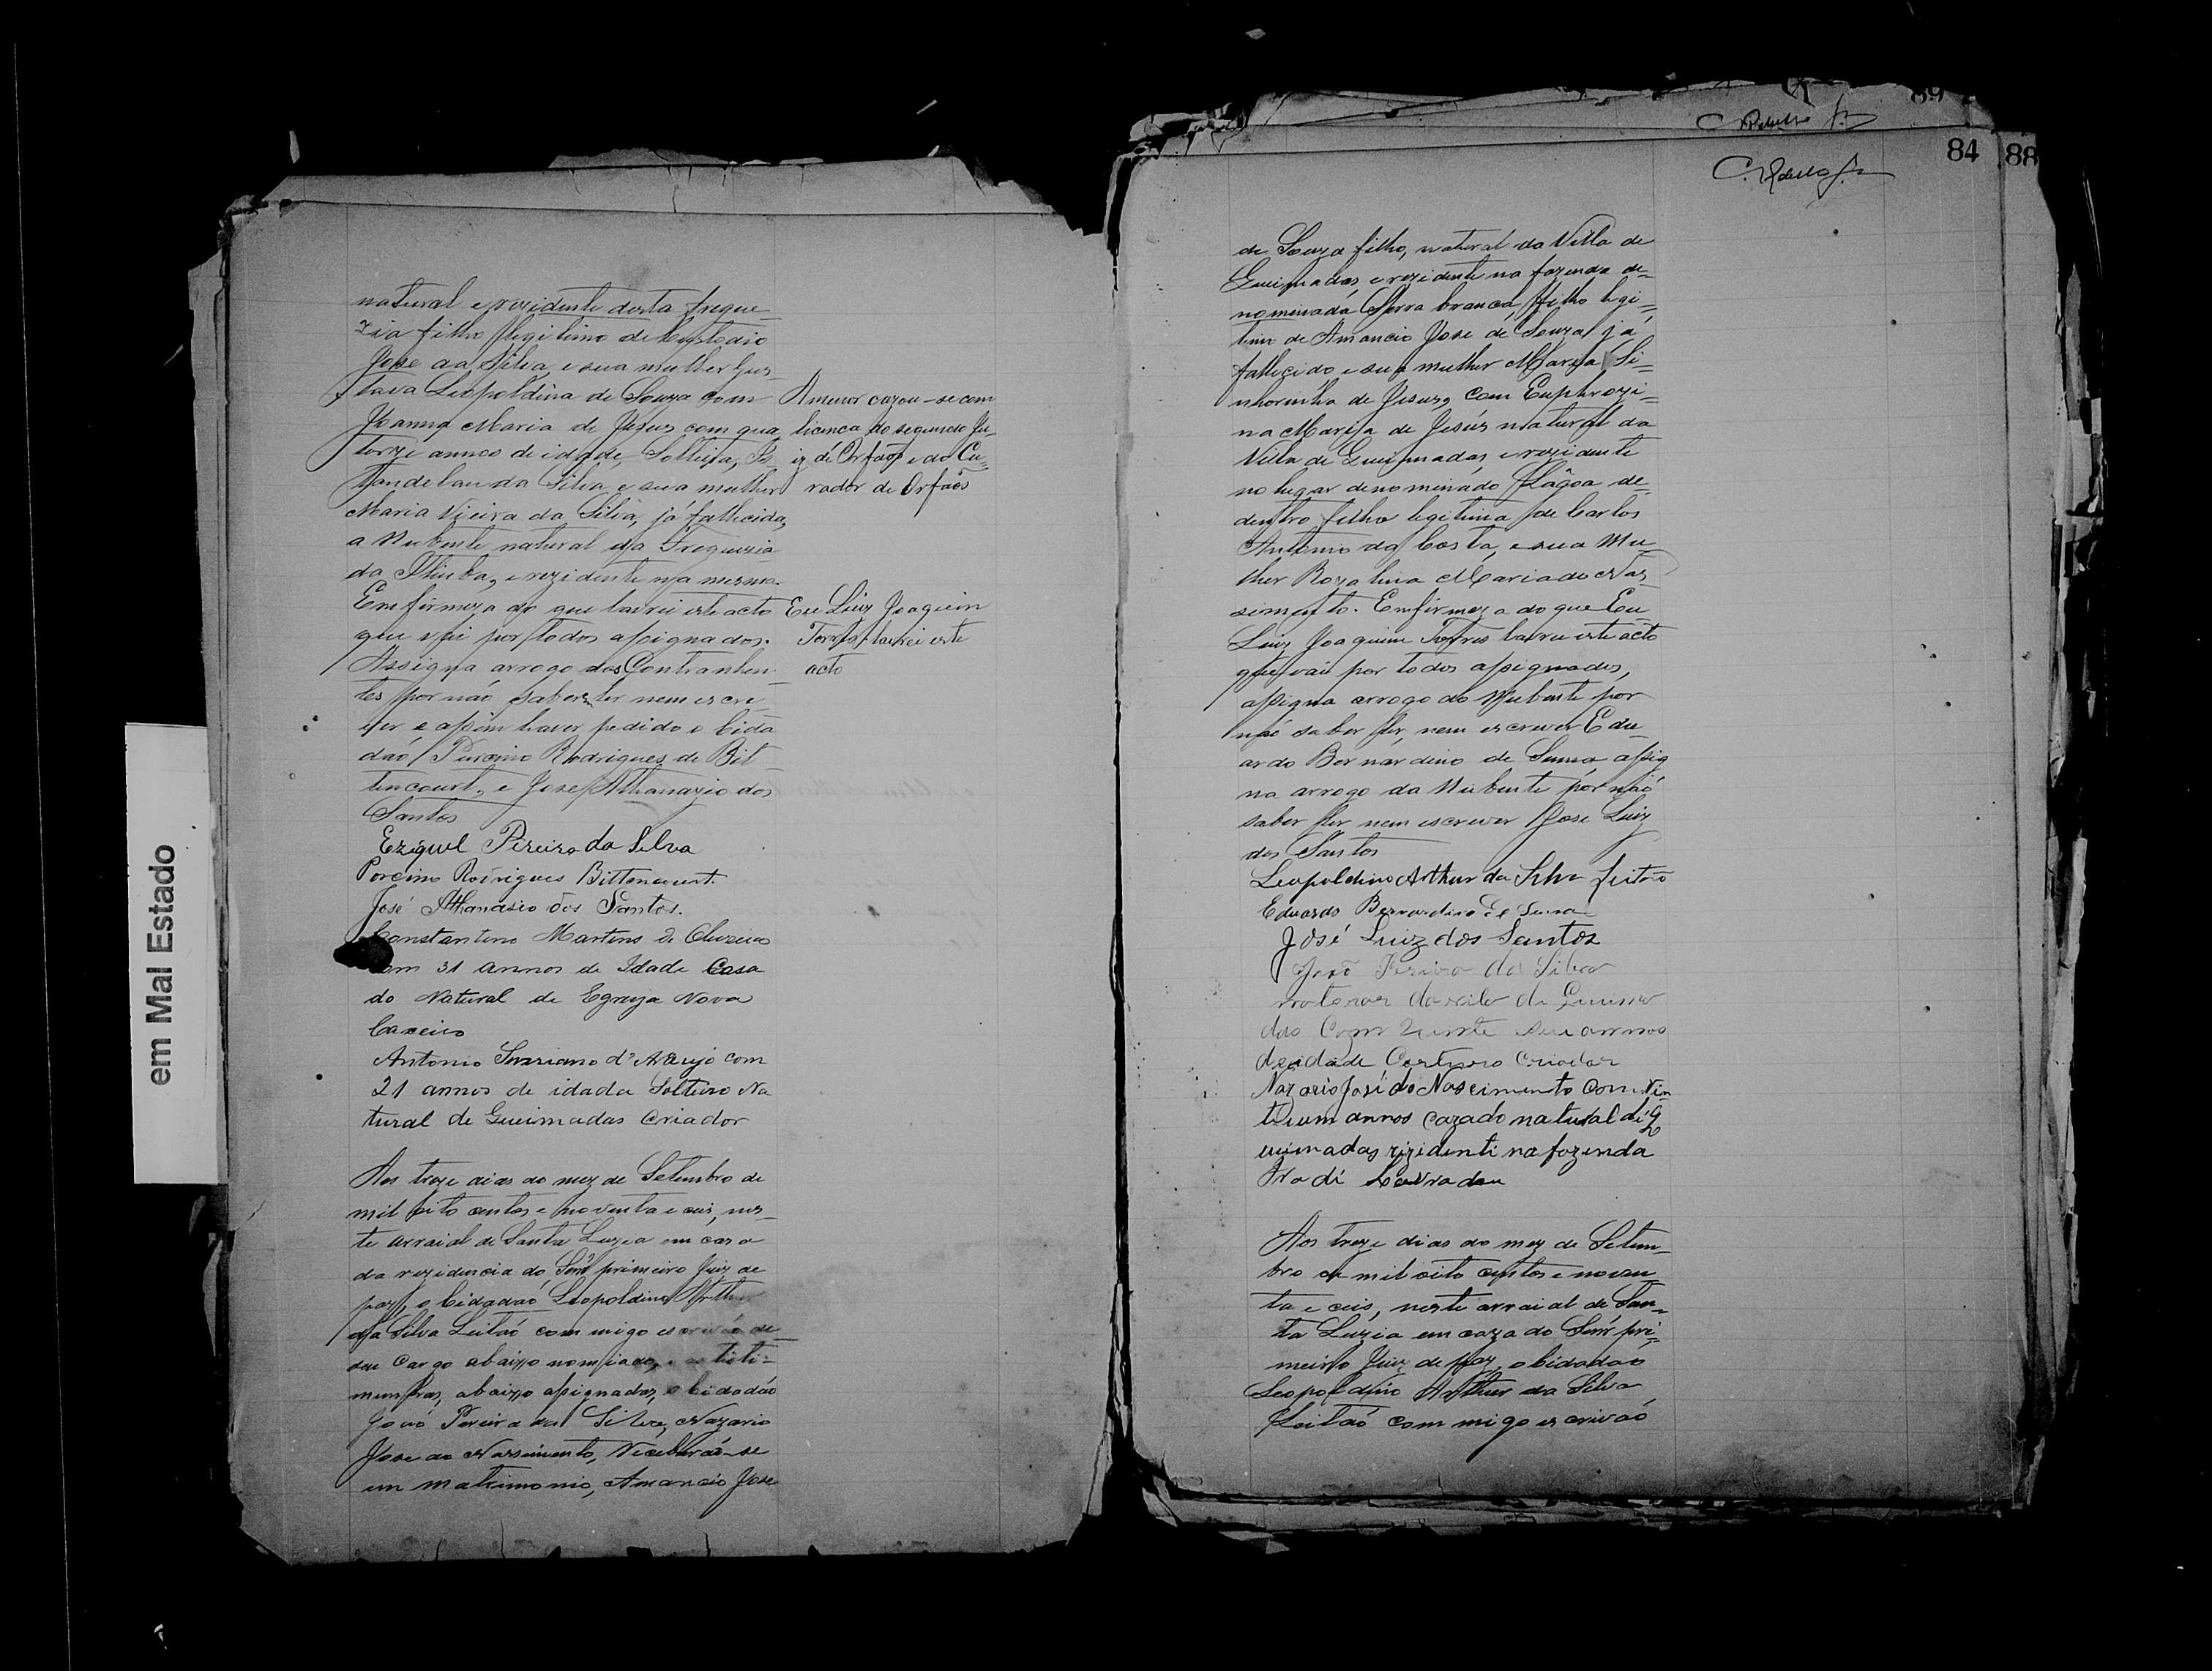 em Mal Estado
natural e rezidente desta fregue-
zia filho legitimo de Custodio
Jose da Silva, e sua mulher Gus-
tava Leopoldina de Souza com
Joanna Maria de Jesus com qua
torze annos de idade, Solteira,
da Silva e sua mulher
Maria Vieira da Silva, já fallecida,
a Nubente natural da Freguezia
da, e rezidente na mesma.
Em firmeza do que lavrei este acto
que vai por todos assignados.
Assigna arrogo dos Contrahen-
tes por não saber ler nem escre-
ver e assim haver pedido o Cida
daõ Porcino Rodrigues de Bit
tencourt, e Jose Athanazio dos
Santos
A menor cazou-se com
licença do segundo Ju-
iz de Orfaõs e do Cu-
rador de Orfaõs
Eu Luiz Joaquim
Torres lavrei este
acto
Eziquel Pereira da Silva
Porcino Rodrigues Bittencourt.
José Athanasio dos Santos.
Constantino Martins de Oliveira
com 31 annos de Idade Casa
do Natural de Egreija Nova
Caxeiro
Antonio d'Araujo com
21 annos de idada Solteiro Na
tural de Queimadas Criador
Aos treze dias do mez de Setembro de
mil oito centos e noventa e ceis, nes-
te arraial de Santa Luzia em caza
da rezidencia do Senr primeiro Juiz de
paz, o Cidadaõ Leopoldino Arthur
da Silva Leitaõ commigo escrivão de
seu Cargo abaixo nomiado, e as testi-
munhas, abaixo assignadas, o Cidadão
Joaõ Pereira da Silva, Nazario
Jose do Nassimento, Receberaõ-se
em matrimonio, Amancio Jose
89
84
88
de Souza filho, natural da Villa de
Queimadas, e rezidente na fazenda de-
nominada Serra branca, filho legi-
timo de Amancio Jose de Souza já
fallecido e sua mulher Maria Si-
nhorinha de Jesus, com Euphrozi-
na Maria de Jesús natural da
Villa de Queimadas, e rezidente
no lugar denominado Lagôa de-
dentro filha legitima de Carlos
Antonio da Costa, e sua Mu
lher Rozalina Maria do Nas-
simento. Em firmeza do que Eu
Luiz Joaquim Torres lavrei este acto
que vai por todos assignados,
assigna arrogo do Nubente por
não saber ler, nem escrever Edu-
ardo Bernardino de Senna assig
na arrogo da Nubente por não
saber ler nem escrever Jose Luiz
dos Santos
Leopoldino Arthur da Silva Leitão
Eduardo Bernardino de Senna
José Luiz dos Santos
João Pereira da Silva
natorar da vila de Queima
das Com vinte seis annos
de idade Criador
Nazario José do Nascimento com Vin
te um annos cazado natural di Q
ueimadas rizidenti na fazenda
Aos treze dias do mez de Setem-
bro de mil oito centos e noven-
ta e ceis, neste arraial de San-
ta Luzia em caza do Senr pri-
meiro Juiz de paz, o Cidadaõ
Leopoldino Arthur da Silva
Leitaõ commigo escrivaõ